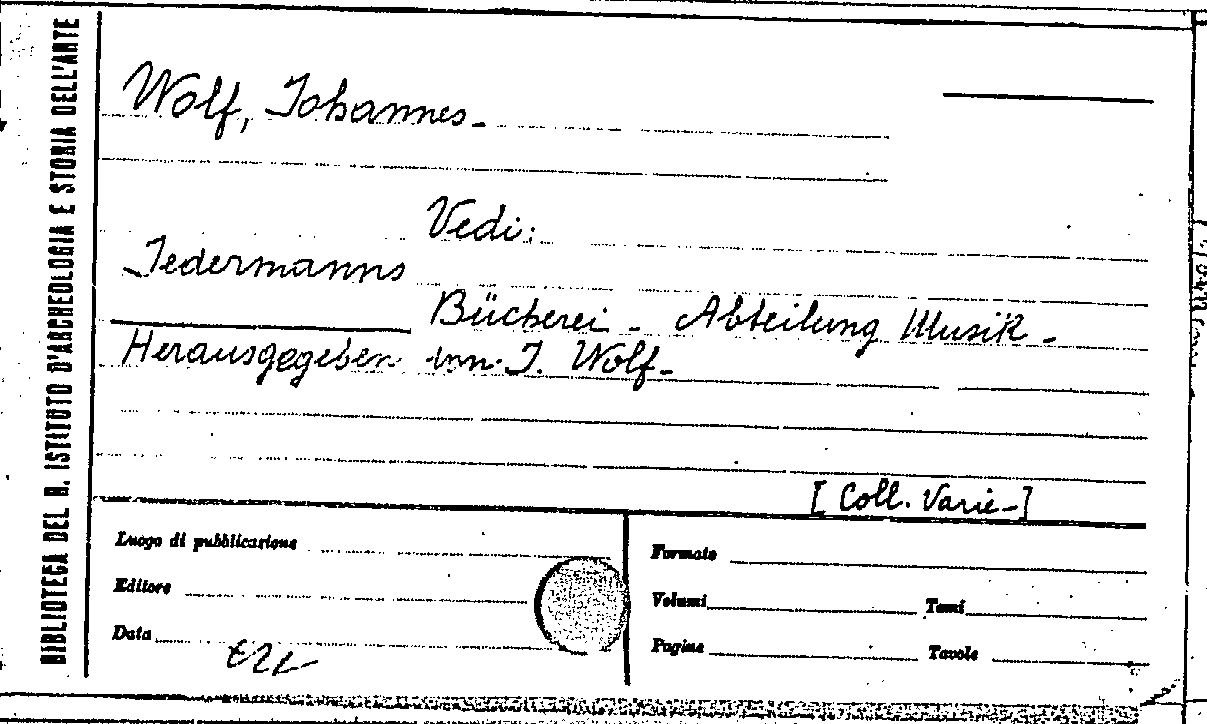 BIBLIOTECA DEL R. ISTITUTO D'ARCHEOLOGIA E STORIA DELL'ARTE
Wolf, Johannes-
Vedi:
Jedermanns
Bücherei - Abteilung Musik-
Herausgegeben von J. Wolf-
[Coll. Varie-]
Luogo di pubblicazione
Editore
Data
Formato
Volumi Tomi
Pagine Tavole